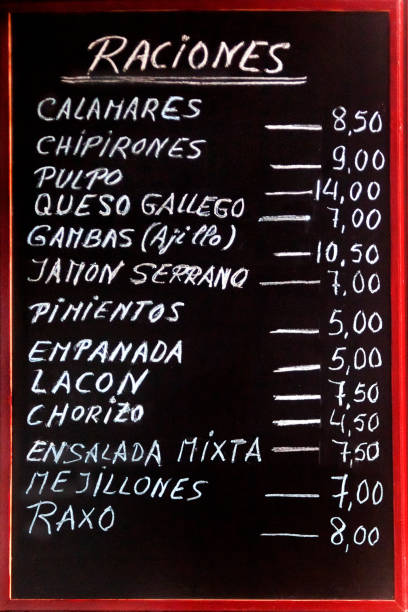 RACIONES
CALAMARES — 8,50
CHIPIRONES — 9,00
PULPO — 14,00
QUESO GALLEGO — 7,00
GAMBAS (Ajillo) — 10,50
JAMON SERRANO — 7,00
PIMIENTOS — 5,00
EMPANADA — 5,00
LACON — 7,50
CHORIZO — 4,50
ENSALADA MIXTA — 7,50
MEJILLONES — 7,00
RAXO — 8,00